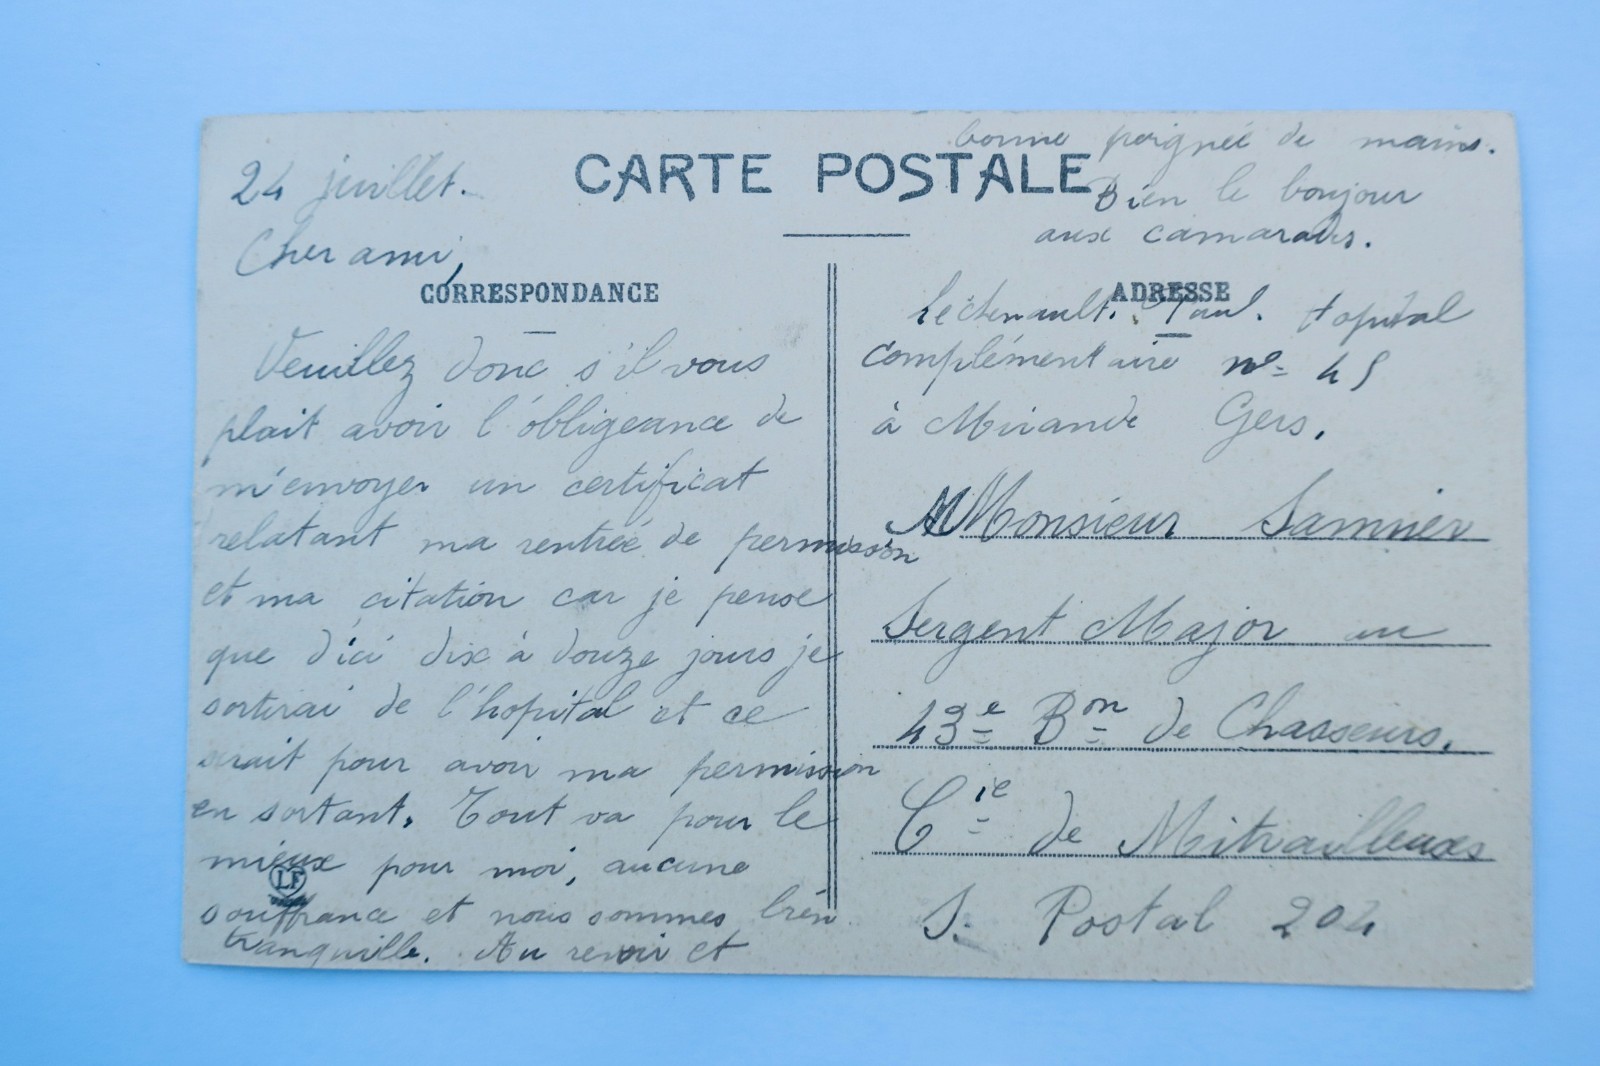 CARTE POSTALE
24 juillet.
Cher ami,
CORRESPONDANCE
Veuillez donc s'il vous
plait avoir l'obligeance de
m'envoyer un certificat
relatant ma rentrée de permission
et ma citation car je pense
que d'ici dix à douze jours je
sortirai de l'hopital et ce
serait pour avoir ma permission
en sortant. Tout va pour le
mieux pour moi, aucune
souffrance et nous sommes bien
tranquille. Au revoir et
LF
bonne poignée de mains.
Bien le bonjour
aux camarades.
ADRESSE
Paul. Hopital
complémentaire n° 45
à Mirande Gers.
Monsieur Samnier
Sergent Major au
43e Bon de Chasseurs.
Cie de Mitrailleuses
S. Postal 204